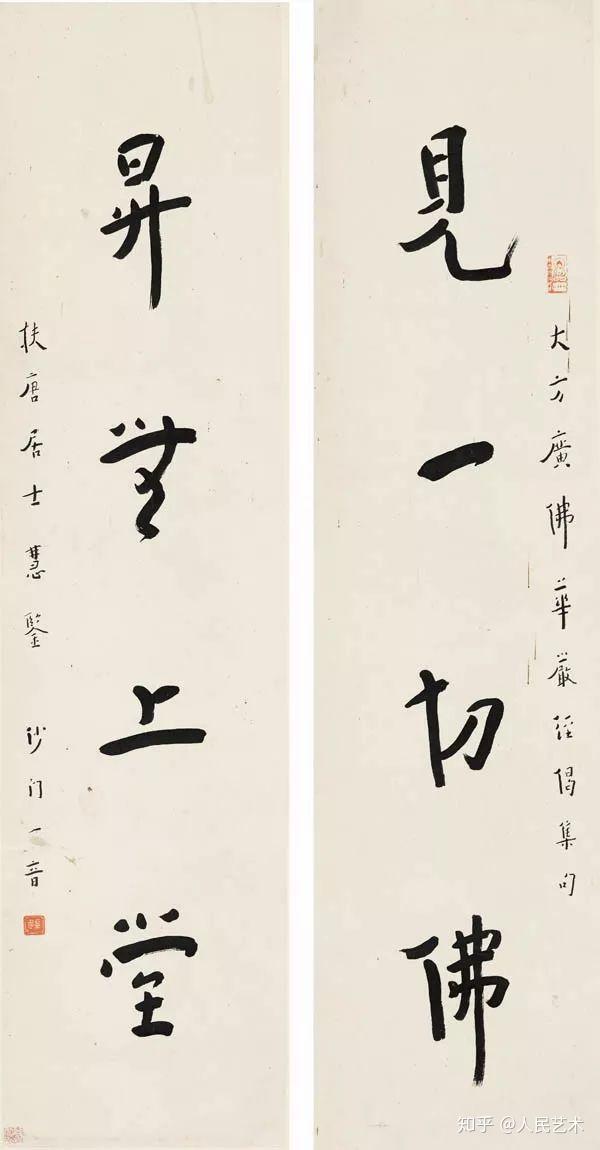 大方廣佛華嚴經偈集句
見一切佛
昇無上堂
扶唐居士慧鑒 沙门一音
知乎 @人民艺术